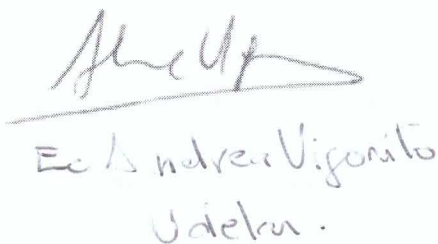 Ec Andrea Vigorito
Udelar.